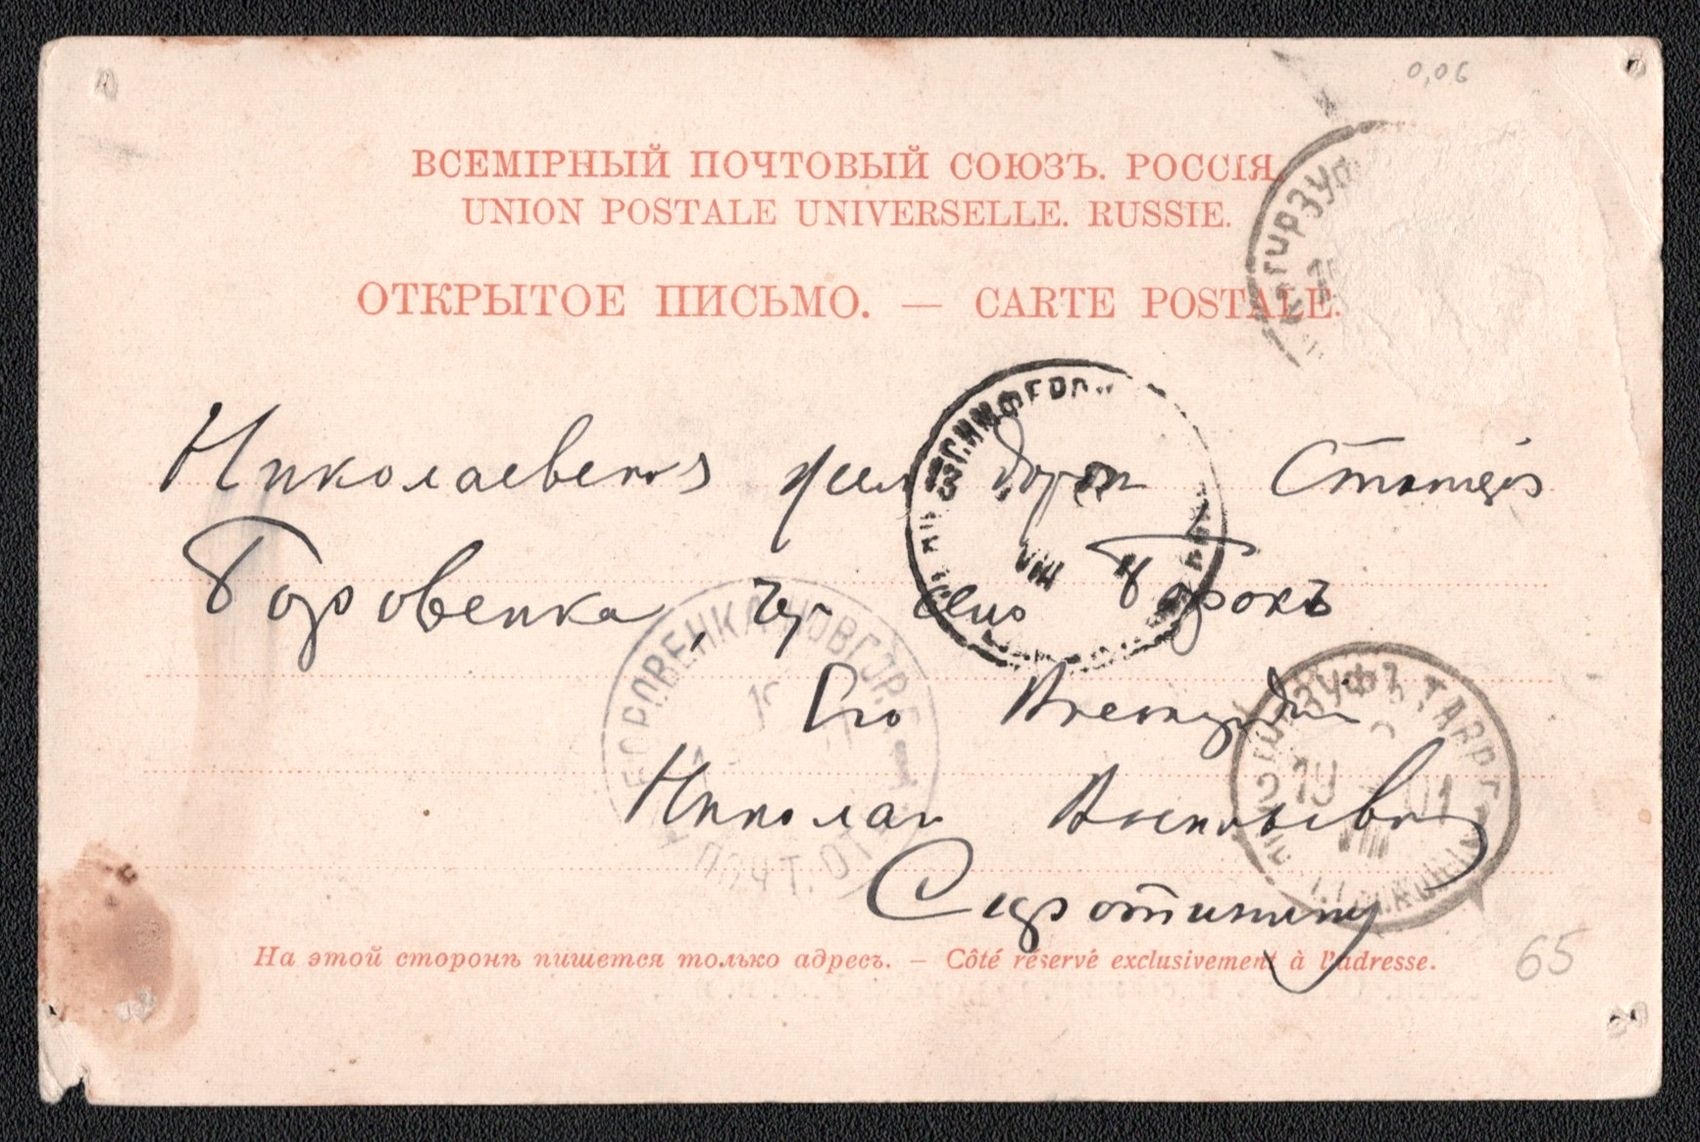 0,06
ВСЕМІРНЫЙ ПОЧТОВЫЙ СОЮЗЪ. РОССІЯ.
UNION POSTALE UNIVERSELLE. RUSSIE.
ОТКРЫТОЕ ПИСЬМО. — CARTE POSTALE.
ГУРЗУФ
СИМФЕРОП
VIII
Николаевской жел дорог Станція
Боровенка, село Борокъ
БОРОВЕНКА НОВГОР.
ПОЧТ. ОТ
Его
ГУРЗУФЪ ТАВР. Г.
19 VIII 01
Николаю Васильевичу
Сиротинину
На этой сторонѣ пишется только адресъ. — Côté réservé exclusivement à l'adresse.
65